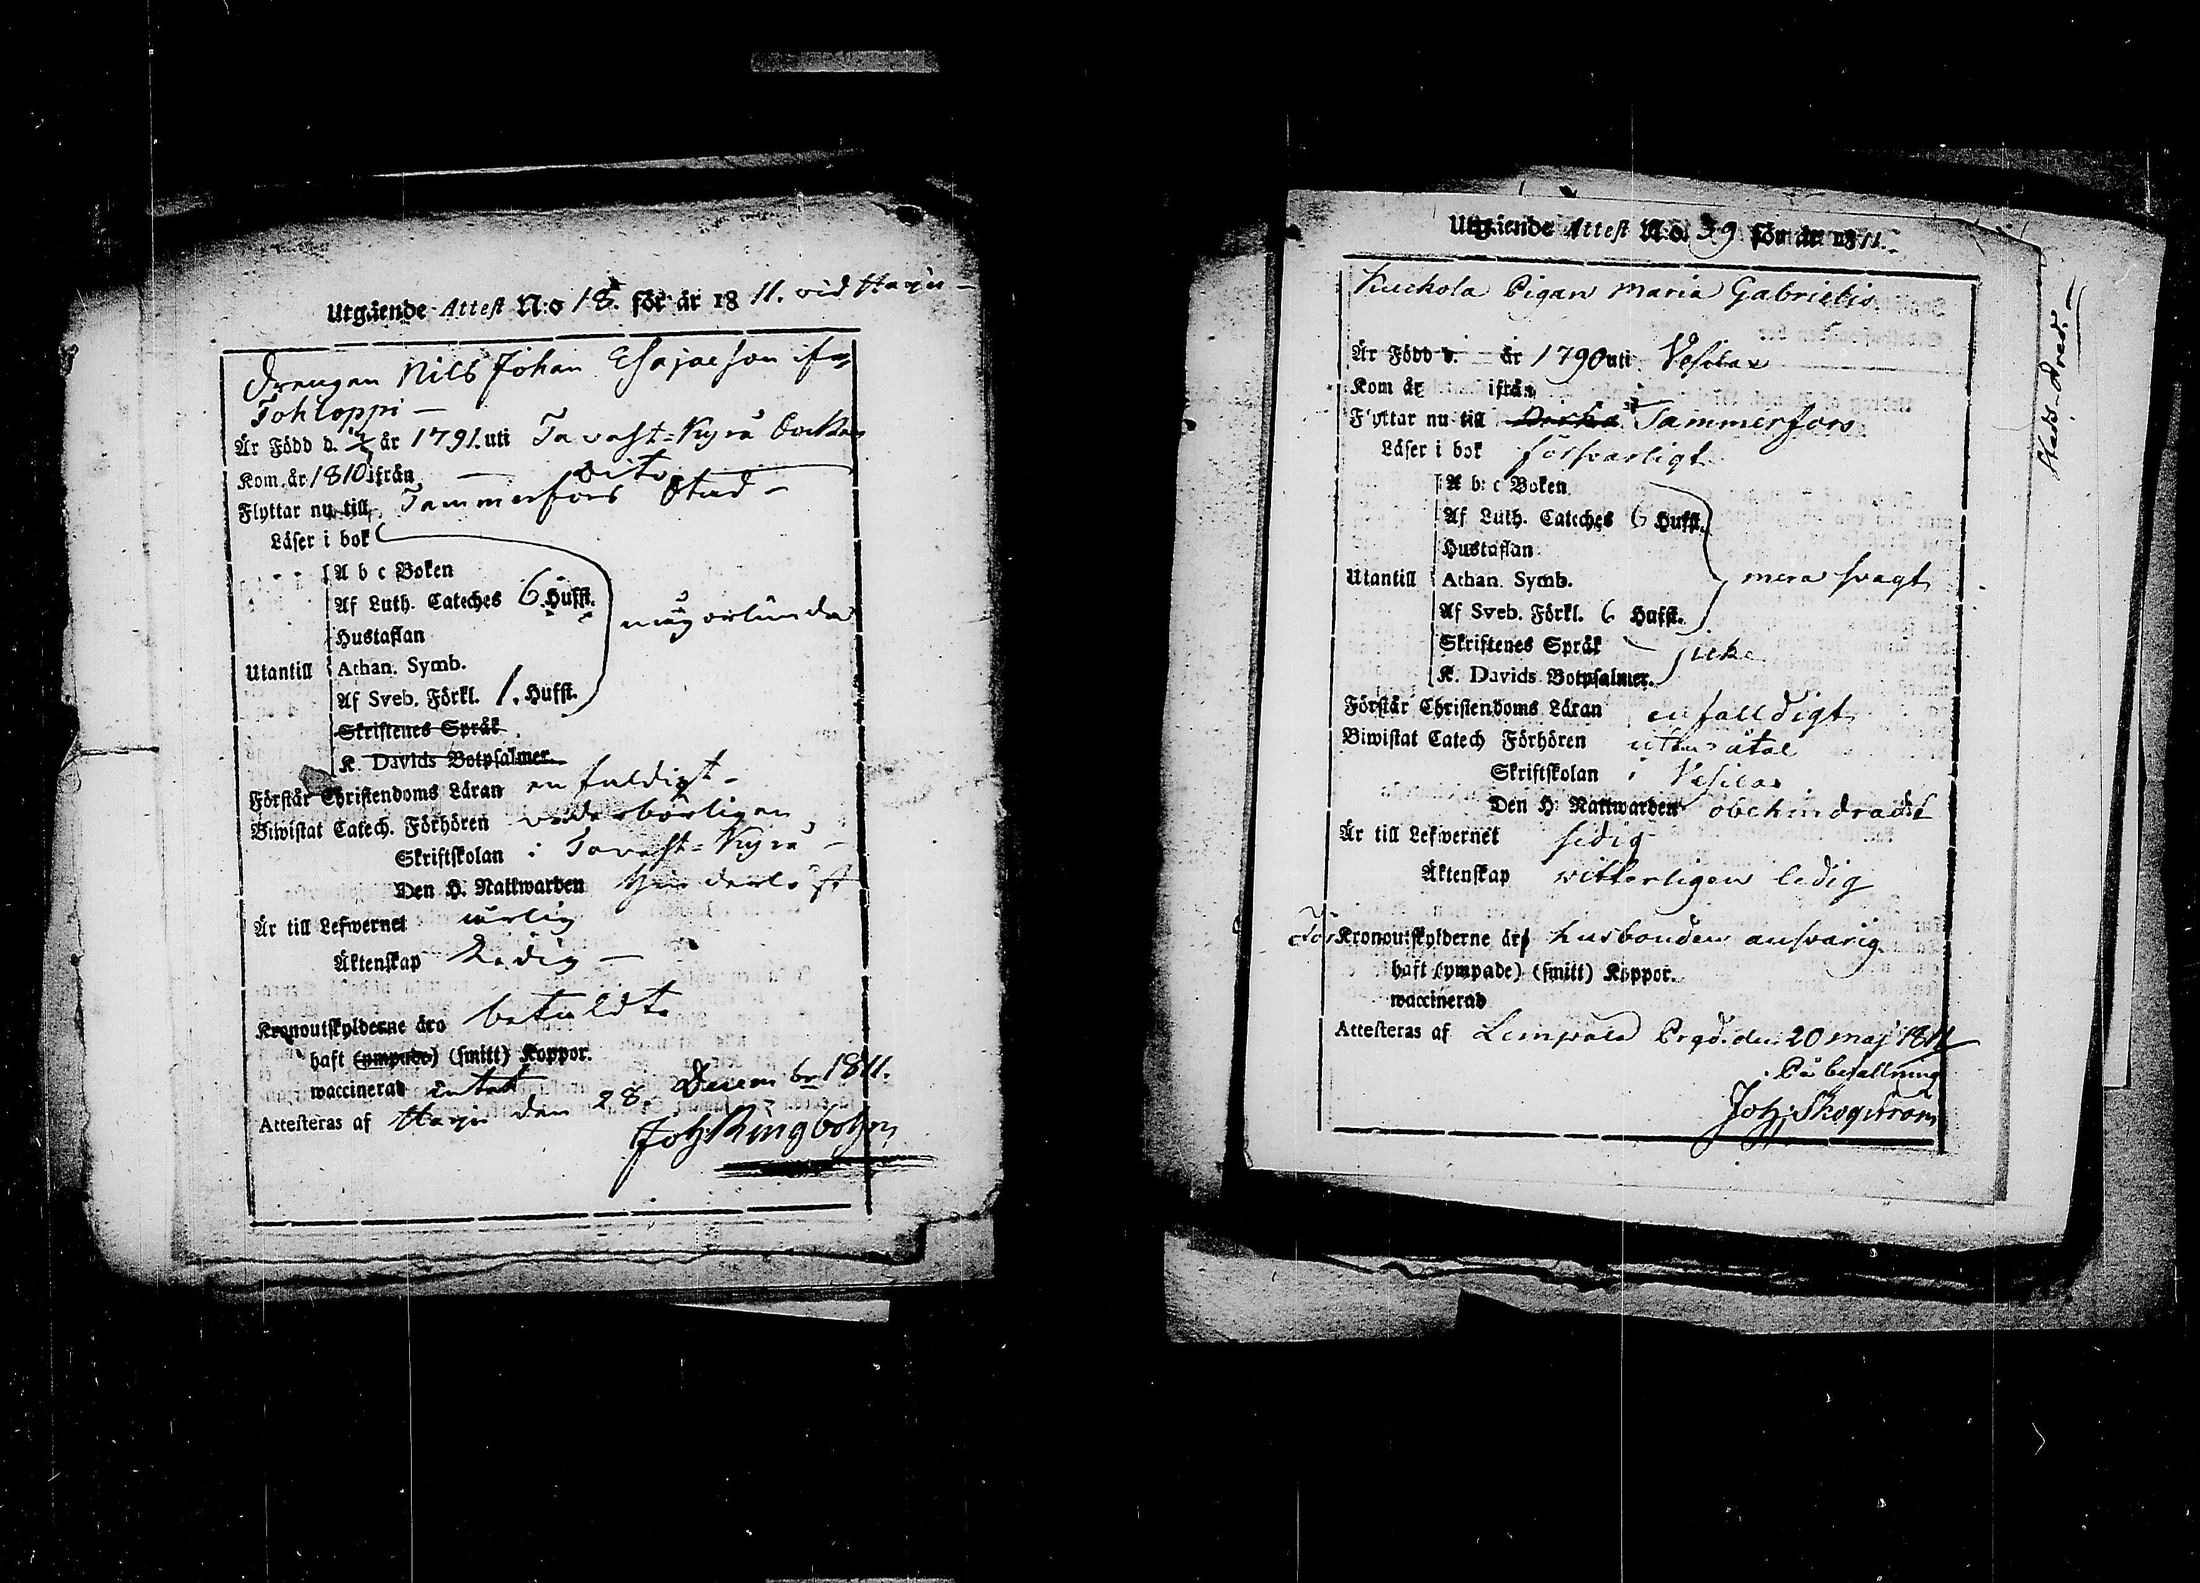 Utgående Attest N:o 18. för år 1811. vid Harju
Drengen Nils Johan Esajæson ifr
Tohloppi
Är Född d. år 1791. uti Tavast-Kyrö Sockn
Kom år 1810 ifrån dito
Flyttar nu till Tammerfors Stad
Läser i bok
A b c Boken
Af Luth. Cateches 6 Hufst.
någorlunda
Hustaflan
Utantill Athan. Symb.
Af Sveb. Förkl. 1. Hufst.
Skriftenes Språk
K. Davids Botpsalmer.
Förstår Christendoms Läran enfaldigt
Biwistat Catech. Förhören vederbörligen
Skriftskolan i Tavast-Kyrö
Den H. Nattwarden hinderlöst
Är till Lefwernet ärlig
Äktenskap Ledig
Kronoutskylderne äro betaldt
haft (ympade) (smitt) Koppor.
waccinerad intet
Attesteras af Harju den 28. Decembr 1811.
Joh Ringbohm
Utgående Attest N:o. 39 för år 1811.
Kuckola Pigan Maria Gabrielis
Är Född d. år 1790 uti Vesilax
Kom år ifrån
Flyttar nu till Tammerfors
Stads-Dräd.
Läser i bok försvarligt
A b c Boken
Af Luth. Cateches 6 Hufst.
Hustaflan
Utantill Athan. Symb. mera svagt
Af Sveb. Förkl. 6 Hufst.
Skriftenes Språk icke
K. Davids Botpsalmer.
Förstår Christendoms Läran enfalldigt
Biwistat Catech Förhören utan åtal
Skriftskolan i Vesilax
Den H. Nattwarden obehindradt
Är till Lefwernet sedig
Äktenskap witterligen ledig
För Kronoutskylderne är husbonden answarig
haft (ympade) (smitt) Koppor.
waccinerad
Attesteras af Lempälä Prgd. den 20 maj 1811
På befallning
Joh: Skogström